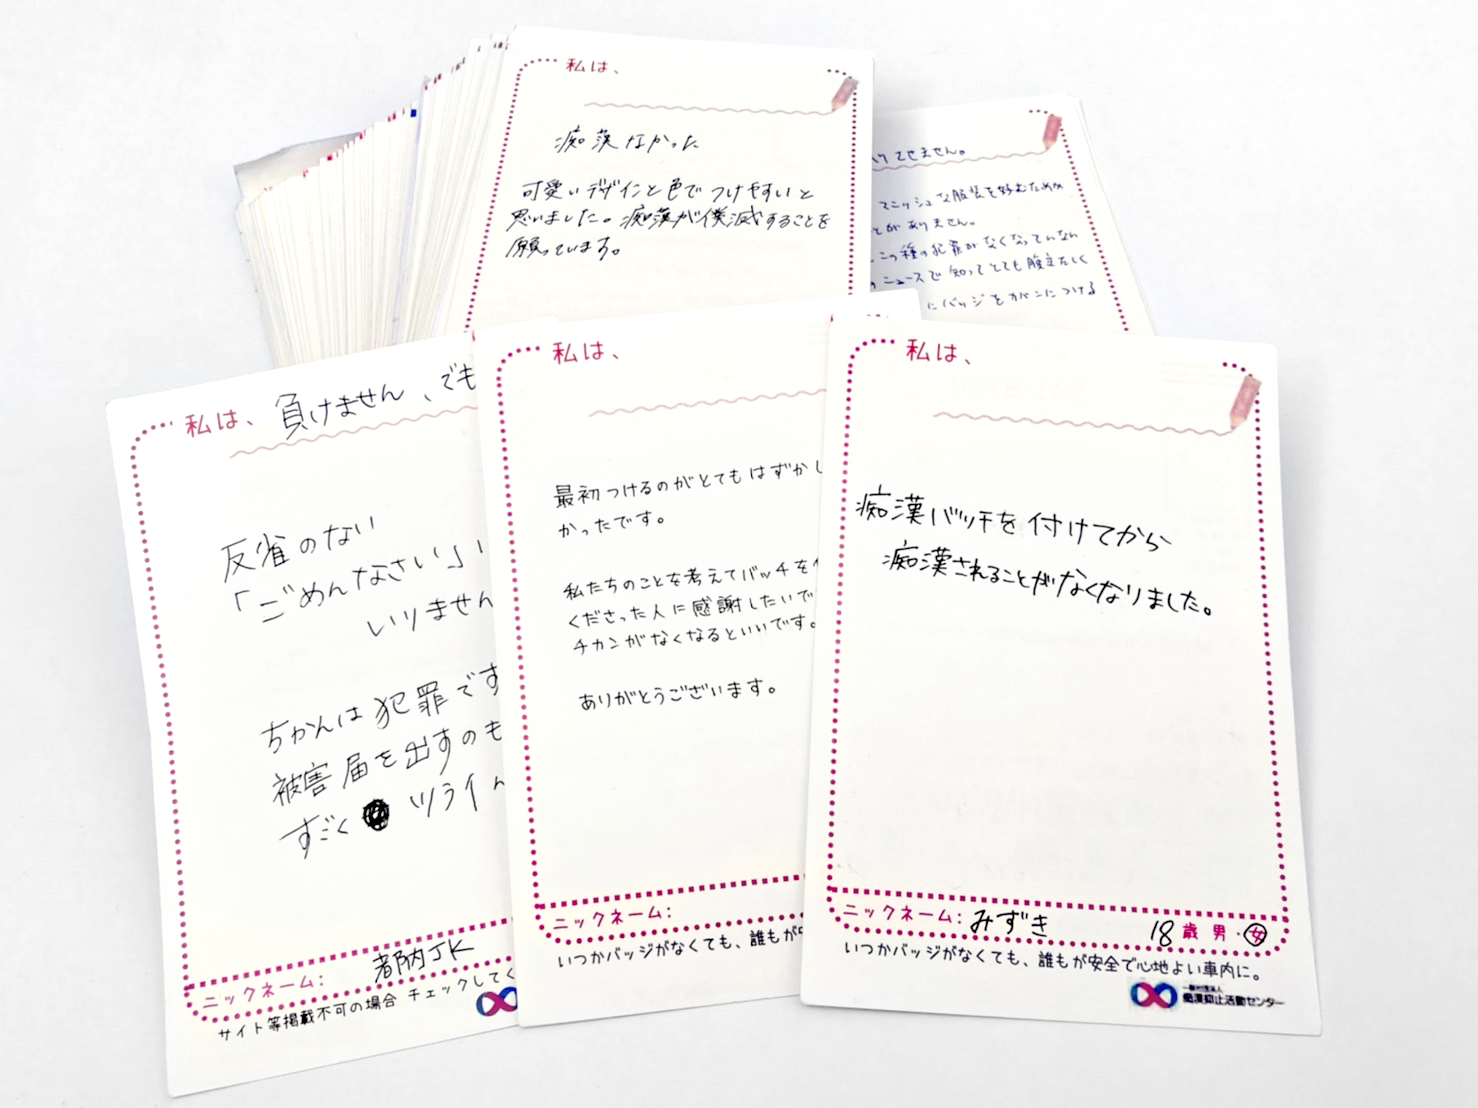 私は、
痴漢なかった
可愛いデザインと色でつけやすいと
思いました。痴漢が僕滅することを
願っています。
てません。
マニッシュな服装を好むためか
とがありません。
この種の犯罪がなくなっていない
ニュースで知ってとても腹立たしく
にバッジをカバンにつける
私は、負けません、でも
反省のない
「ごめんなさい」
いりません
ちかんは犯罪です
被害届を出すのも
すごく ツライ
ニックネーム: 都内JK
サイト等掲載不可の場合 チェックしてく
私は、
最初つけるのがとてもはずかし
かったです。
私たちのことを考えてバッチを
くださった人に感謝したいで
チカンがなくなるといいです。
ありがとうございます。
ニックネーム:
いつかバッジがなくても、誰もが
私は、
痴漢バッチを付けてから
痴漢されることがなくなりました。
ニックネーム: みずき 18歳 男・女
いつかバッジがなくても、誰もが安全で心地よい車内に。
一般社団法人
痴漢抑止活動センター